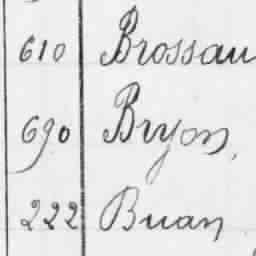 610 Brossau
690 Bryon,
222 Buan